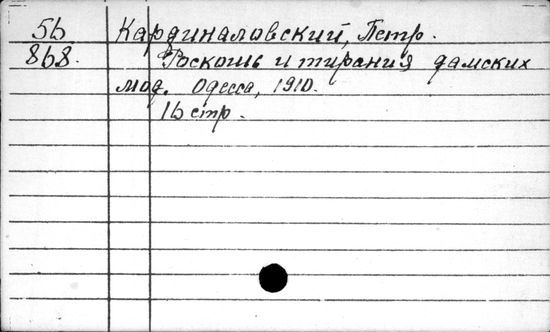 56 Кардиналовский, Петр.
868. Роскошь и тирания дамских
мод. Одесса, 1910.
16 стр.